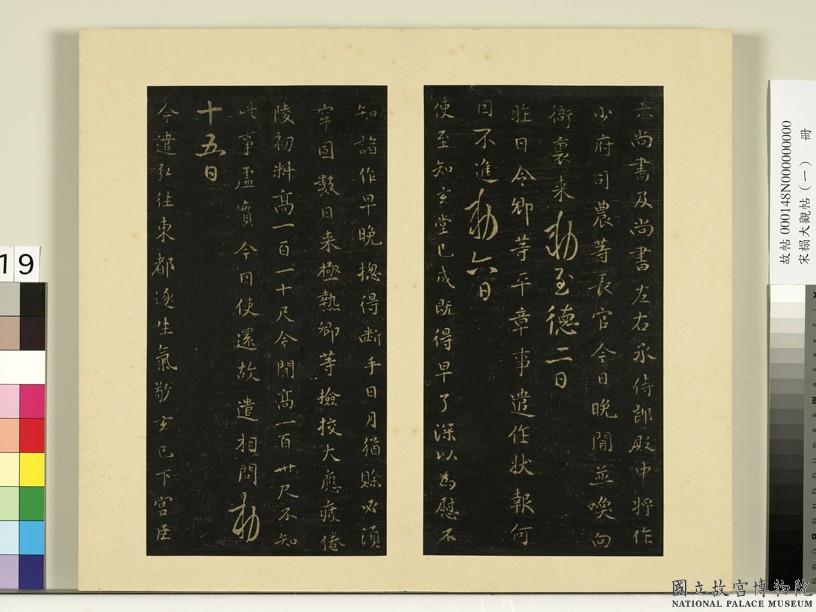 尚書及尚書左右丞侍郎殿中將作
少府司農等長官今日晚間並喚向
衙裏來勅至德二日
昨日令卿等平章事遣任狀報何
因不進勅六日
使至知玄堂已成既得早了深以為慰不
知諳作早晚揔得斷手日月猶賒必須
牢固數日來極熱卿等檢挍大應疲倦
陵初料高一百一十尺今聞高一百卅尺不知
此事虛實今日使還故遣相問勅
十五日
今遣弘往東都逐生氣敬玄已下宮臣
故帖 000148N000000000
宋榻大觀帖（一） 冊
19
國立故宮博物院
NATIONAL PALACE MUSEUM